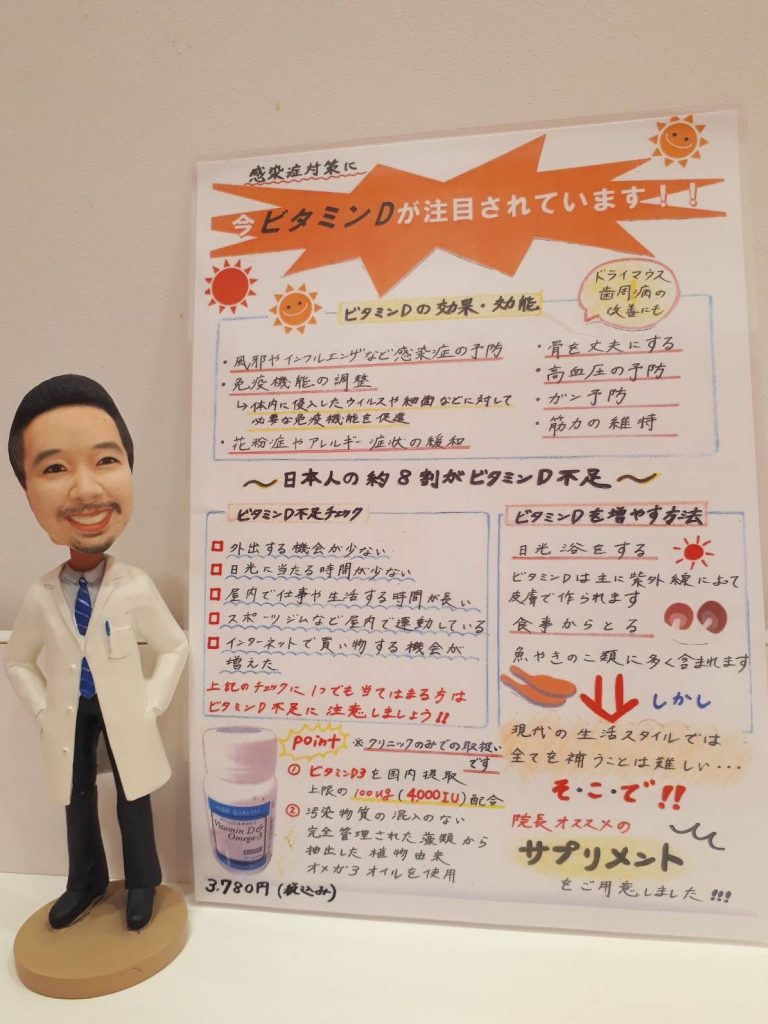 感染症対策に
今ビタミンDが注目されています！！
ドライマウス
歯周病の
改善にも
ビタミンDの効果・効能
・風邪やインフルエンザなど感染症の予防
・免疫機能の調整
↳体内に侵入したウイルスや細菌などに対して
必要な免疫機能を促進
・花粉症やアレルギー症状の緩和
・骨を丈夫にする
・高血圧の予防
・ガン予防
・筋力の維持
〜日本人の約8割がビタミンD不足〜
ビタミンD不足チェック
□ 外出する機会が少ない
□ 日光に当たる時間が少ない
□屋内で仕事や生活する時間が長い
□スポーツジムなど屋内で運動している
□インターネットで買い物する機会が
増えた
上記のチェックに1つでも当てはまる方は
ビタミンD不足に注意しましょう!!
ビタミンDを増やす方法
日光浴をする
ビタミンDは主に紫外線によって
皮膚で作られます
食事からとる
魚やきのこ類に多く含まれます
しかし
現代の生活スタイルでは
全てを補うことは難しい・・・
そ・こ・で!!
院長オススメの
サプリメント
をご用意しました!!!
Point ※クリニックのみでの取扱い
です
① ビタミンD3を国内摂取
上限の100μg(4,000IU)配合
② 汚染物質の混入のない
完全管理された藻類から
抽出した植物由来
オメガ3オイルを使用
HIGH QUALITY
Vitamin D&
Omega-3
3.780円(税込み)